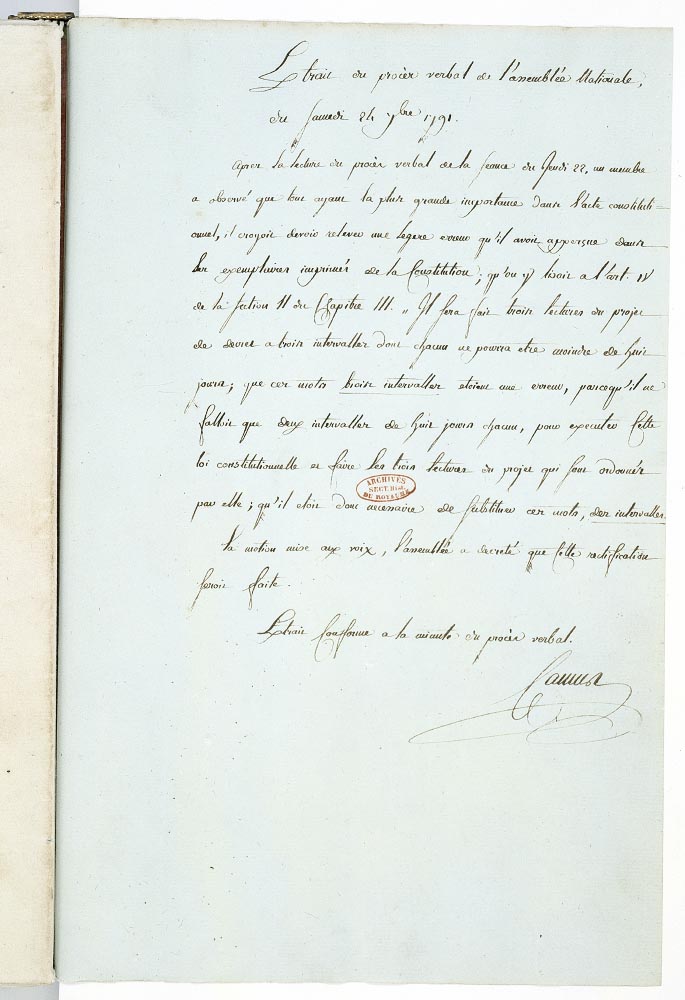 Extrait du procès verbal de l'assemblée Nationale,
du Samedi 24 7bre 1791.
après la lecture du procès verbal de la séance du Jeudi 22, un membre
a observé que tout ayant la plus grande importance dans l'acte constituti-
onnel, il croyoit devoir relever une legere erreur qu'il avoit apperçue dans
les exemplaires imprimés de la Constitution; qu'on y lisoit a l'art. IV
de la section II du Chapitre III. „ Il sera fait trois lectures du projet
de decret a trois intervalles dont chacun ne pourra etre moindre de huit
jours; que ces mots trois intervalles etoient une erreur, parcequ'il ne
falloit que deux intervalles de huit jours chacun, pour executer cette
loi constitutionnelle et faire les trois lectures du projet qui sont ordonnées
ARCHIVES
SECT. HIST.
DU ROYAUME
par elle; qu'il etoit donc necessaire de substituer ces mots, des intervalles.
la motion mise aux voix, l'assemblée a decreté que cette rectification
seroit faite.
Extrait conforme a la minute du procès verbal.
Camus